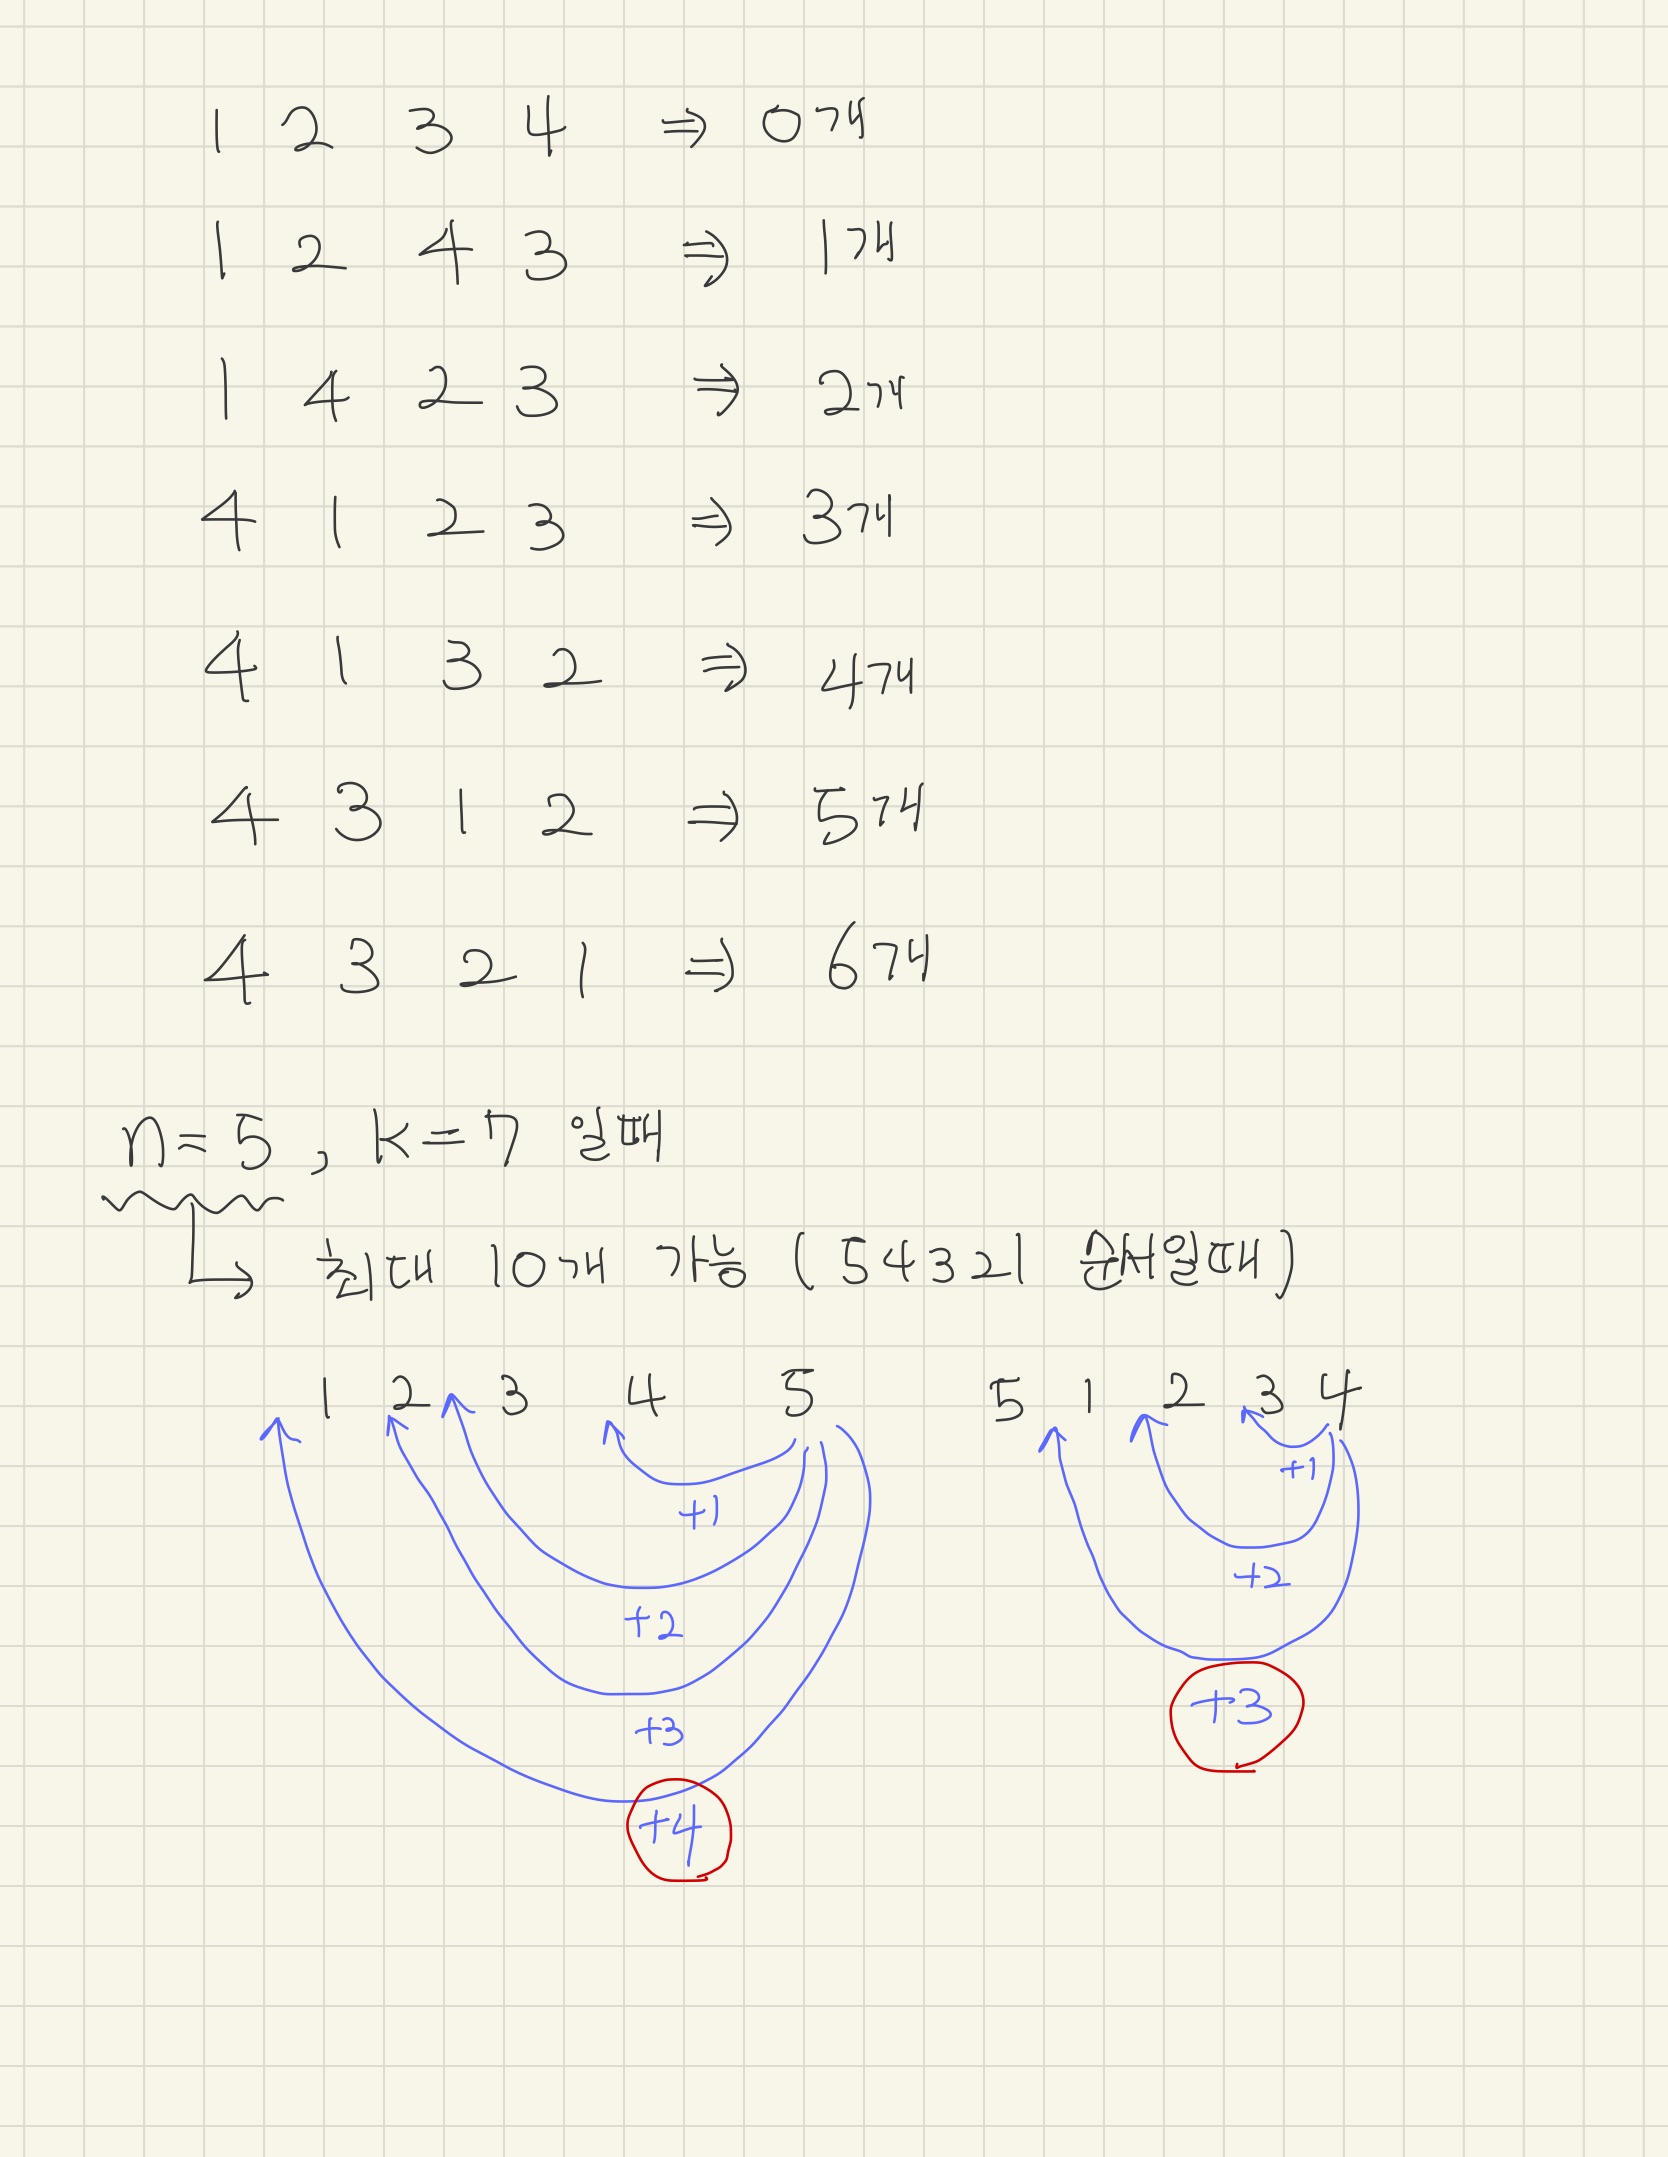 1 2 3 4 ⇒ 0개
1 2 4 3 ⇒ 1개
1 4 2 3 ⇒ 2개
4 1 2 3 ⇒ 3개
4 1 3 2 ⇒ 4개
4 3 1 2 ⇒ 5개
4 3 2 1 ⇒ 6개
n=5, k=7 일때
↳ 최대 10개 가능 (54321 순서일때)
1 2 3 4 5 5 1 2 3 4
+1 +1
+2 +2
+3 +3
+4